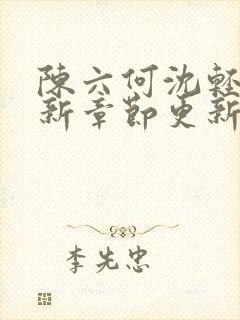 陳六何沈輕
新章節更新
李先忠